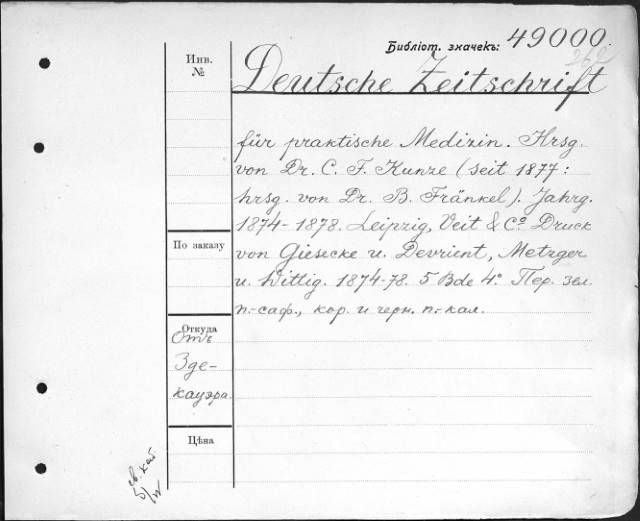 Библіот. значекъ: 49000.
262
Инв.
№
Deutsche Zeitschrift
für praktische Medizin. Hrsg.
von Dr. C. F. Kunze (seit 1877:
hrsg. von Dr. B. Fränkel). Jahrg.
1874-1878. Leipzig, Veit & Co. Druck
По заказу
von Giesecke u. Devrient, Metzger
u. Wittig. 1874-78. 5 Bde 4º. Пер. зел.
п.-саф., кор. и черн. п.-кал.
Откуда
Отъ
Зде-
кауэра.
Цѣна